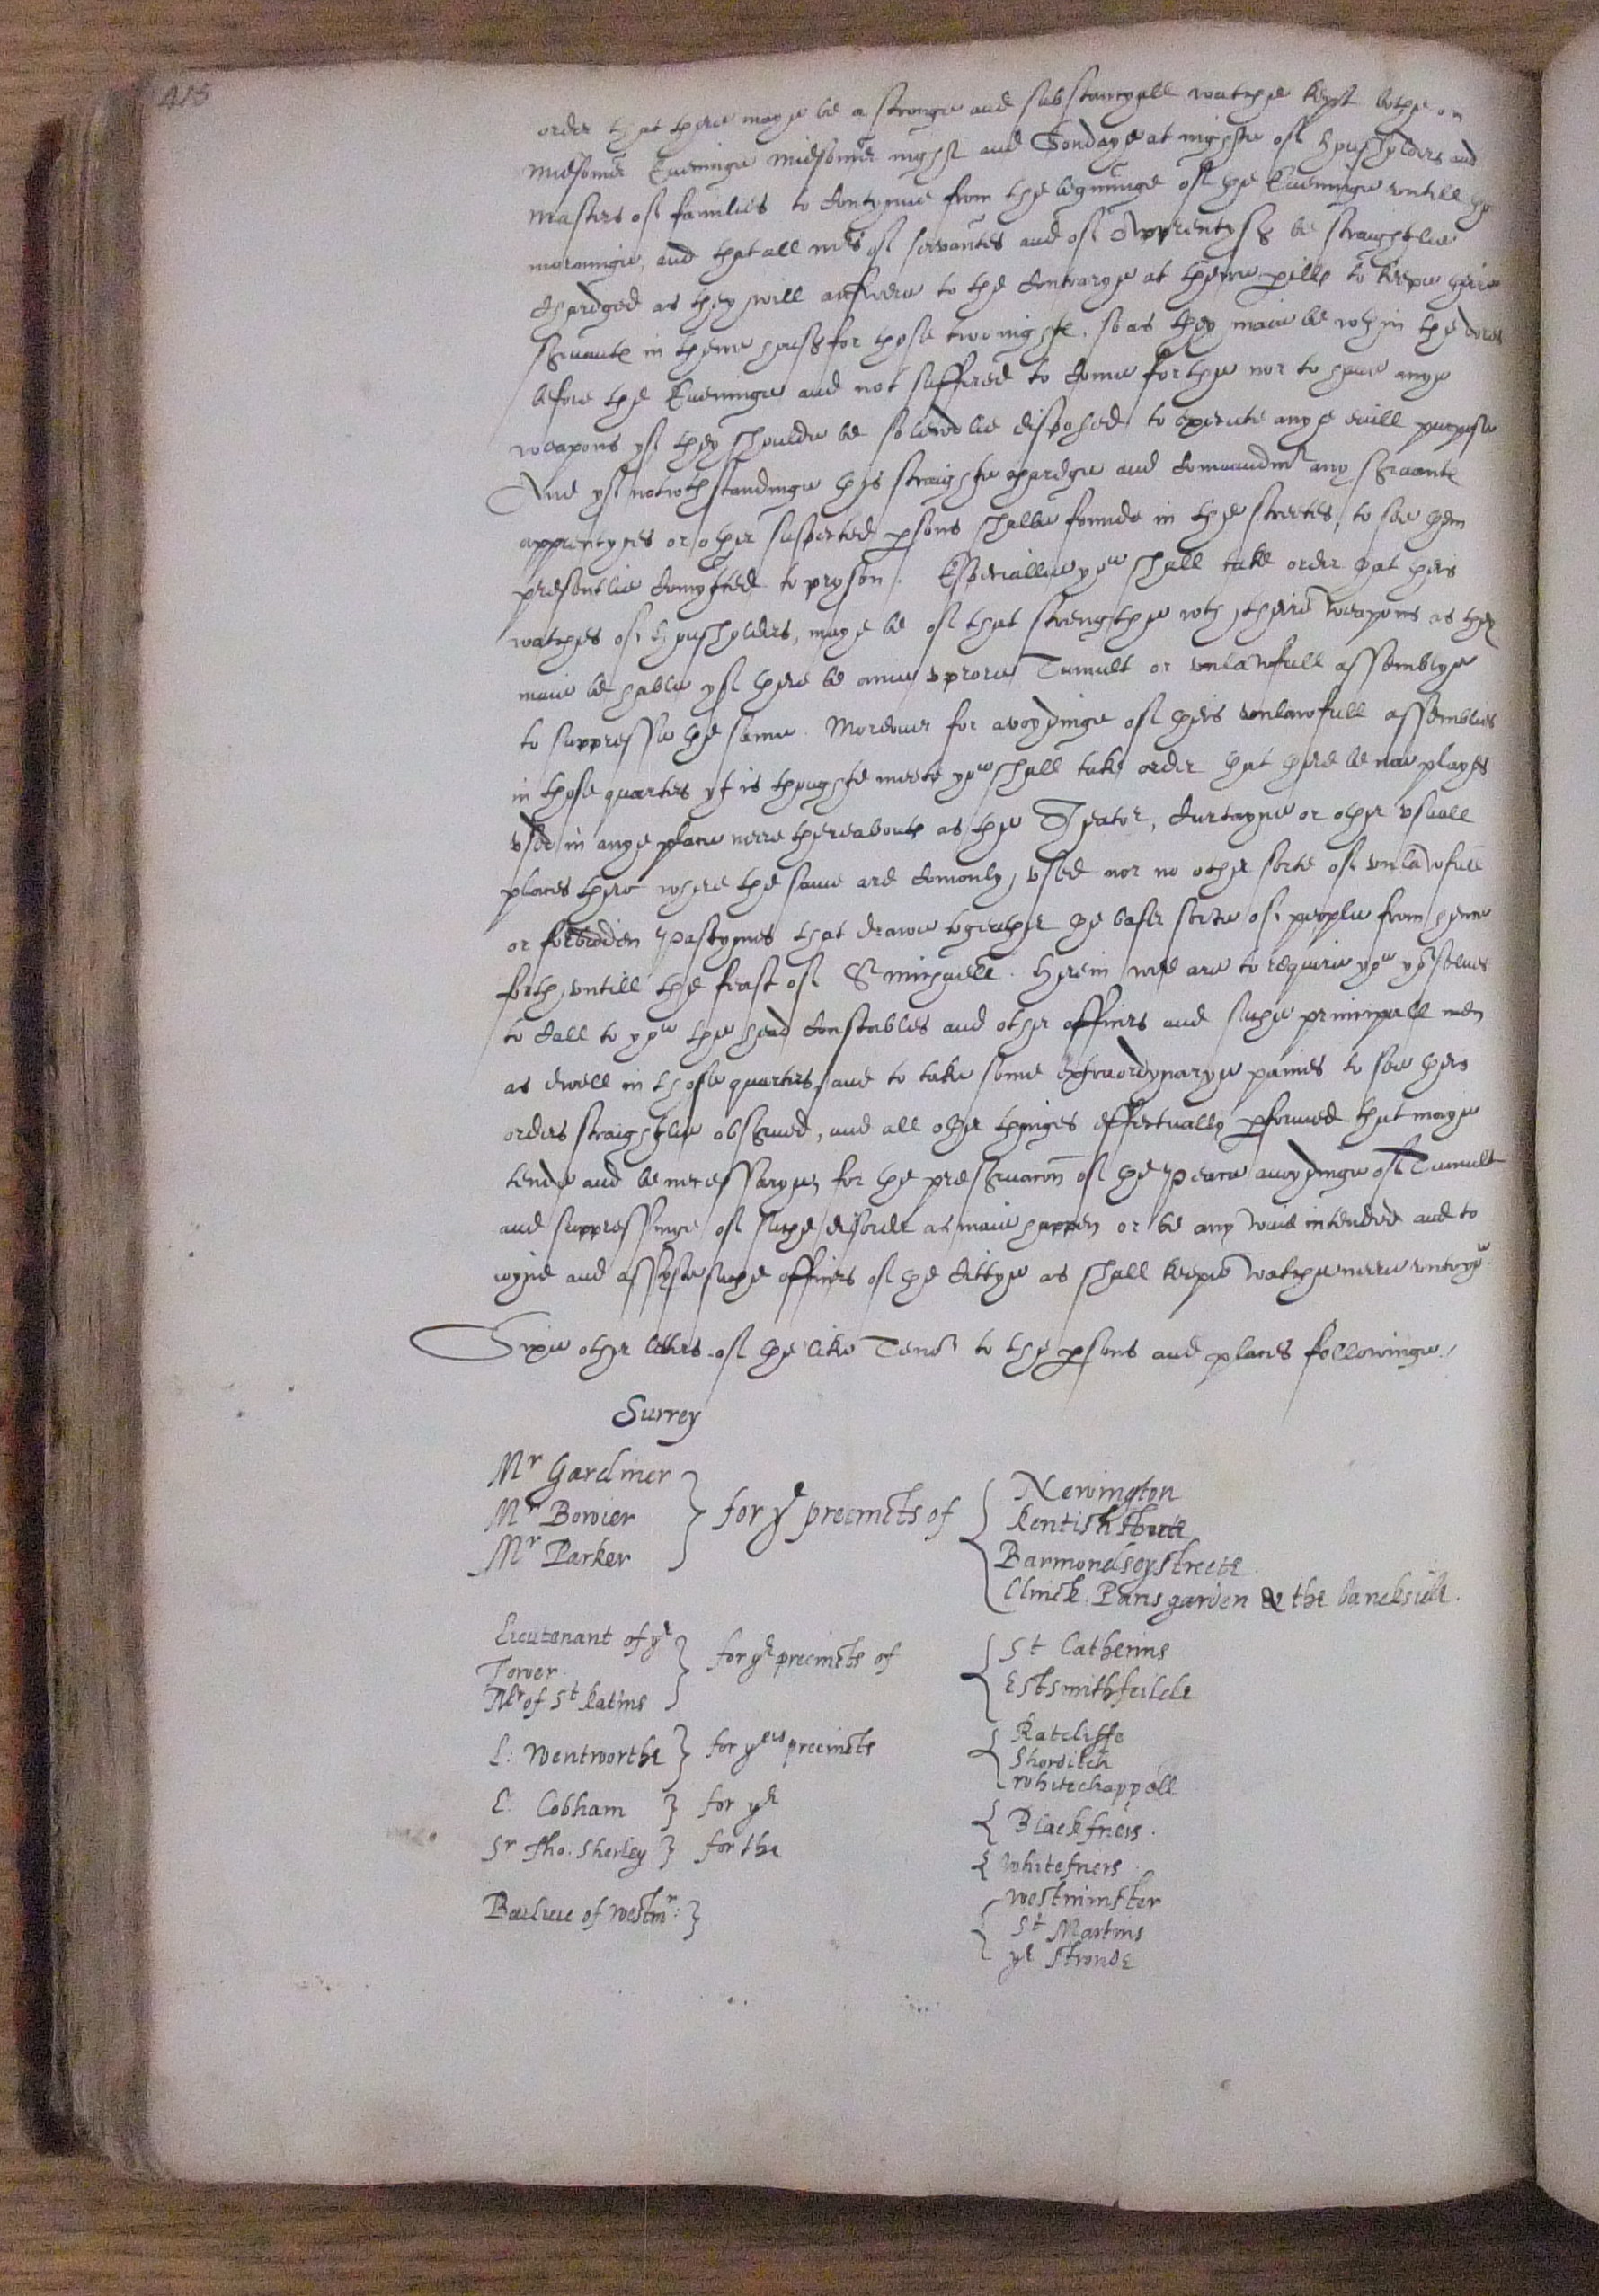 415
order that there maye be a stronge and substancyall watche kept bothe on
Midsomer Eveninge Midsomer night and Sondaye at nighte of housholders and
Masters of families to contynue from the beginninge of the Eveninge untill the
morninge, and that all mrs of servantes and of Apprentyses be straightlie
chardged as they will answere to the contrarye at theire perills to keepe theire
servantes in theire houses for those two nightes, so as they maie be wthin the dores
before the Eveninge and not suffered to come forthe nor to have anye
weapons yf they shoulde be so lewdlie disposed to execute anye evill purpose
And yf notwthstandinge this straighte chardge and comaundmt any servants
apprentyces or other suspected psons shalbe founde in the streetes, to see them
presentlie comytted to pryson. Especiallie you shall take order that theis
watches of housholders, maye be of that strengthe wth theire weapons as they
maie be hable yf there be anie uprore Tumult or unlawfull assemblye
to suppresse the same. Moreover for avoydinge of theis unlawfull assemblies
in those quarters yt is thoughte meete you shall take order that there be noe playes
used in anye place neere thereaboutes as the Theator, Curtayne or other usuall
places there where the same are comonly used nor no other sorte of unlawfull
or forbidden pastymes that drawe togeather the baser sorte of people from hence
forth untill the feast of St Michaell. Herein wee are to require you yorselves
to call to you the head Constables and other officers and suche principall men
as dwell in those quarters, and to take some extraordynarye paines to see theis
orders straightlie observed, and all other thinges effectually pformed that maye
tende and be necessarye for the preservacon of the Peace avoydinge of Tumult
and suppressinge of suche disorder as maie happen or be any waie intended and to
joyne and assyste suche officers of the Cittye as shall keepe watche neere unto you.
Sixe other lettres of the like Tenor to the psons and places followinge.
Surrey
Mr Gardiner
Mr Bowier
Mr Parker } for ye precincts of { Newington
Kentish streete
Barmondsey streete.
Clinck. Paris garden & the banckside.
Lieutenant of ye
Tower.
Mr of St Katins } for ye precincts of { St Catherins
Estsmithfeilde
L: Wentworthe } for yeis precincts { Ratcliffe
Shorditch
Whitechappell
L: Cobham } for ye { Blackfriers.
Sr Tho. Sherley } for the { Whitefriers.
Bailiue of Westmr: } { Westminster
St Martins
ye Stronde